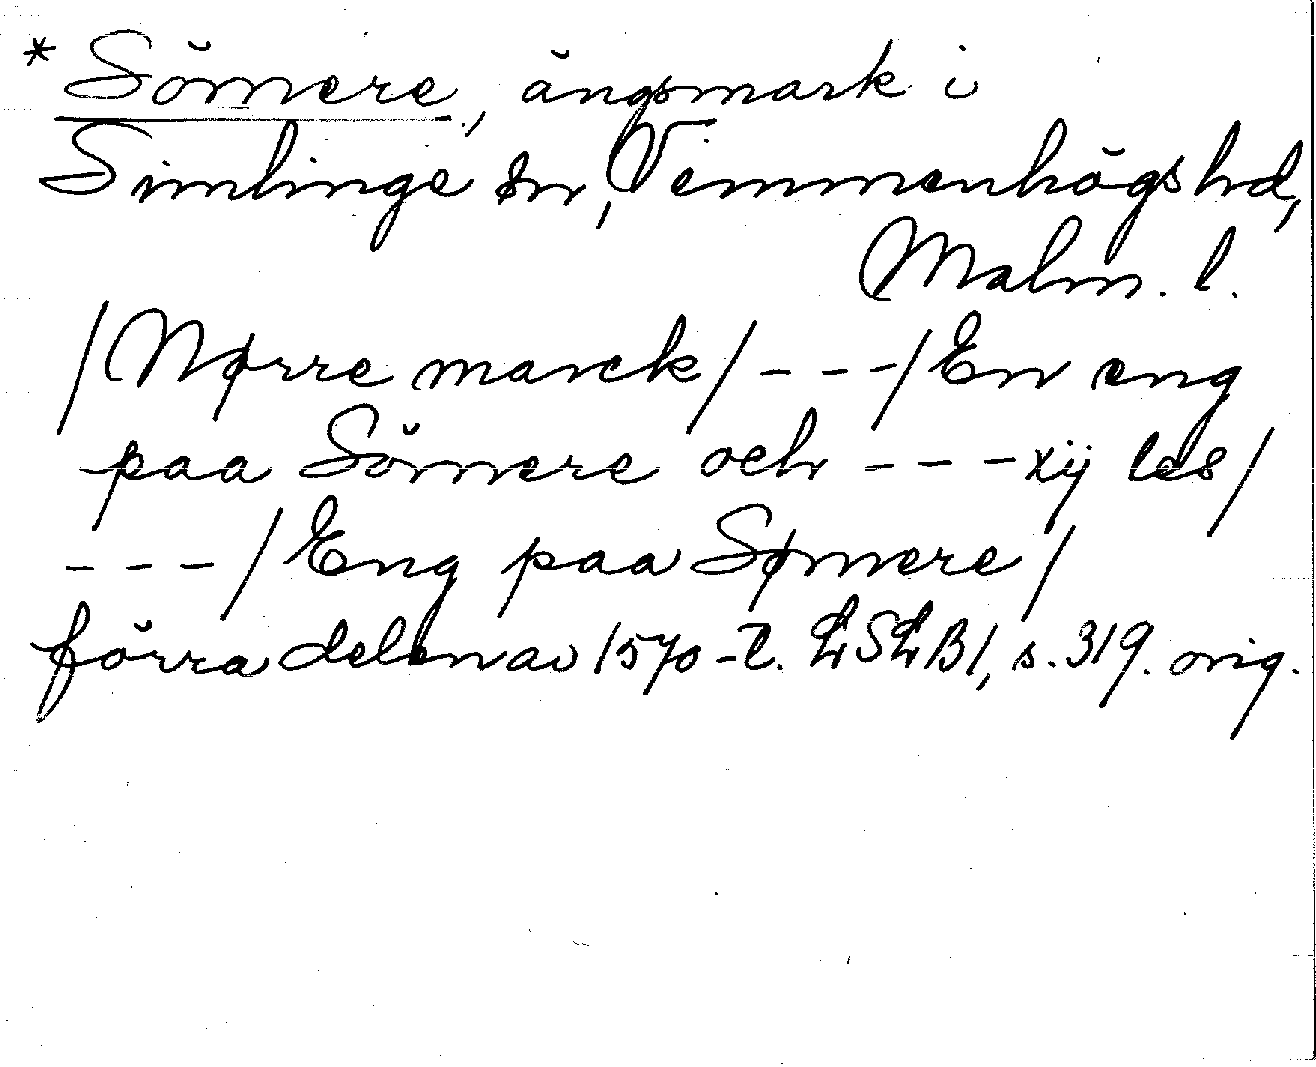 * Sömere, ängsmark i
Simlinge sn, Vemmenhögs hd,
Malm. l.
/Nørre marck/ --- /En eng
paa Sömere och --- xij les/
--- /Eng paa Sømere/
förra delen av 1570-t. LSLB1, s. 319. orig.